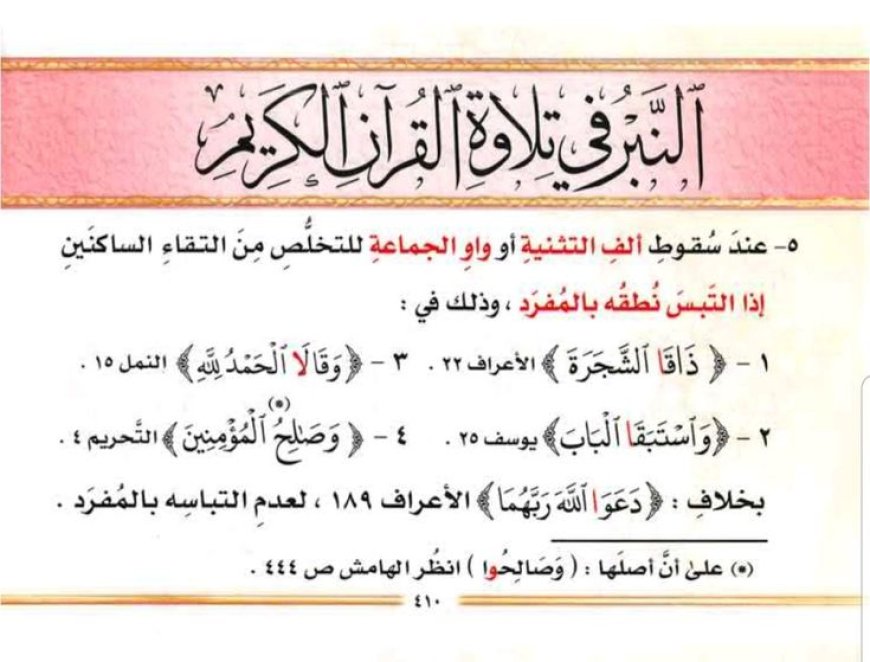 النَّبْرُ في تِلَاوَةِ ٱلْقُرْآنِ ٱلْكَرِيمِ
٥- عندَ سُقوطِ ألفِ التثنيةِ أو واوِ الجماعةِ للتخلُّصِ مِنَ التقاءِ الساكنَينِ
إذا التَبسَ نُطقُه بالمُفرَد ، وذلك في :
١ - ﴿ ذَاقَا ٱلشَّجَرَةَ ﴾ الأعراف ٢٢ . ٣ - ﴿ وَقَالَا ٱلْحَمْدُ لِلَّهِ ﴾ النمل ١٥ .
٢ - ﴿ وَٱسْتَبَقَا ٱلْبَابَ ﴾ يوسف ٢٥ . ٤ - ﴿ وَصَٰلِحُ ٱلْمُؤْمِنِينَ ﴾(*) التَّحريم ٤ .
بخلافِ : ﴿ دَعَوَا ٱللَّهَ رَبَّهُمَا ﴾ الأعراف ١٨٩ ، لعدمِ التباسِه بالمُفرَد .
(*) علىٰ أنَّ أصلَها : ( وَصَالِحُوا ) انظُر الهامش ص ٤٤٤ .
٤١٠